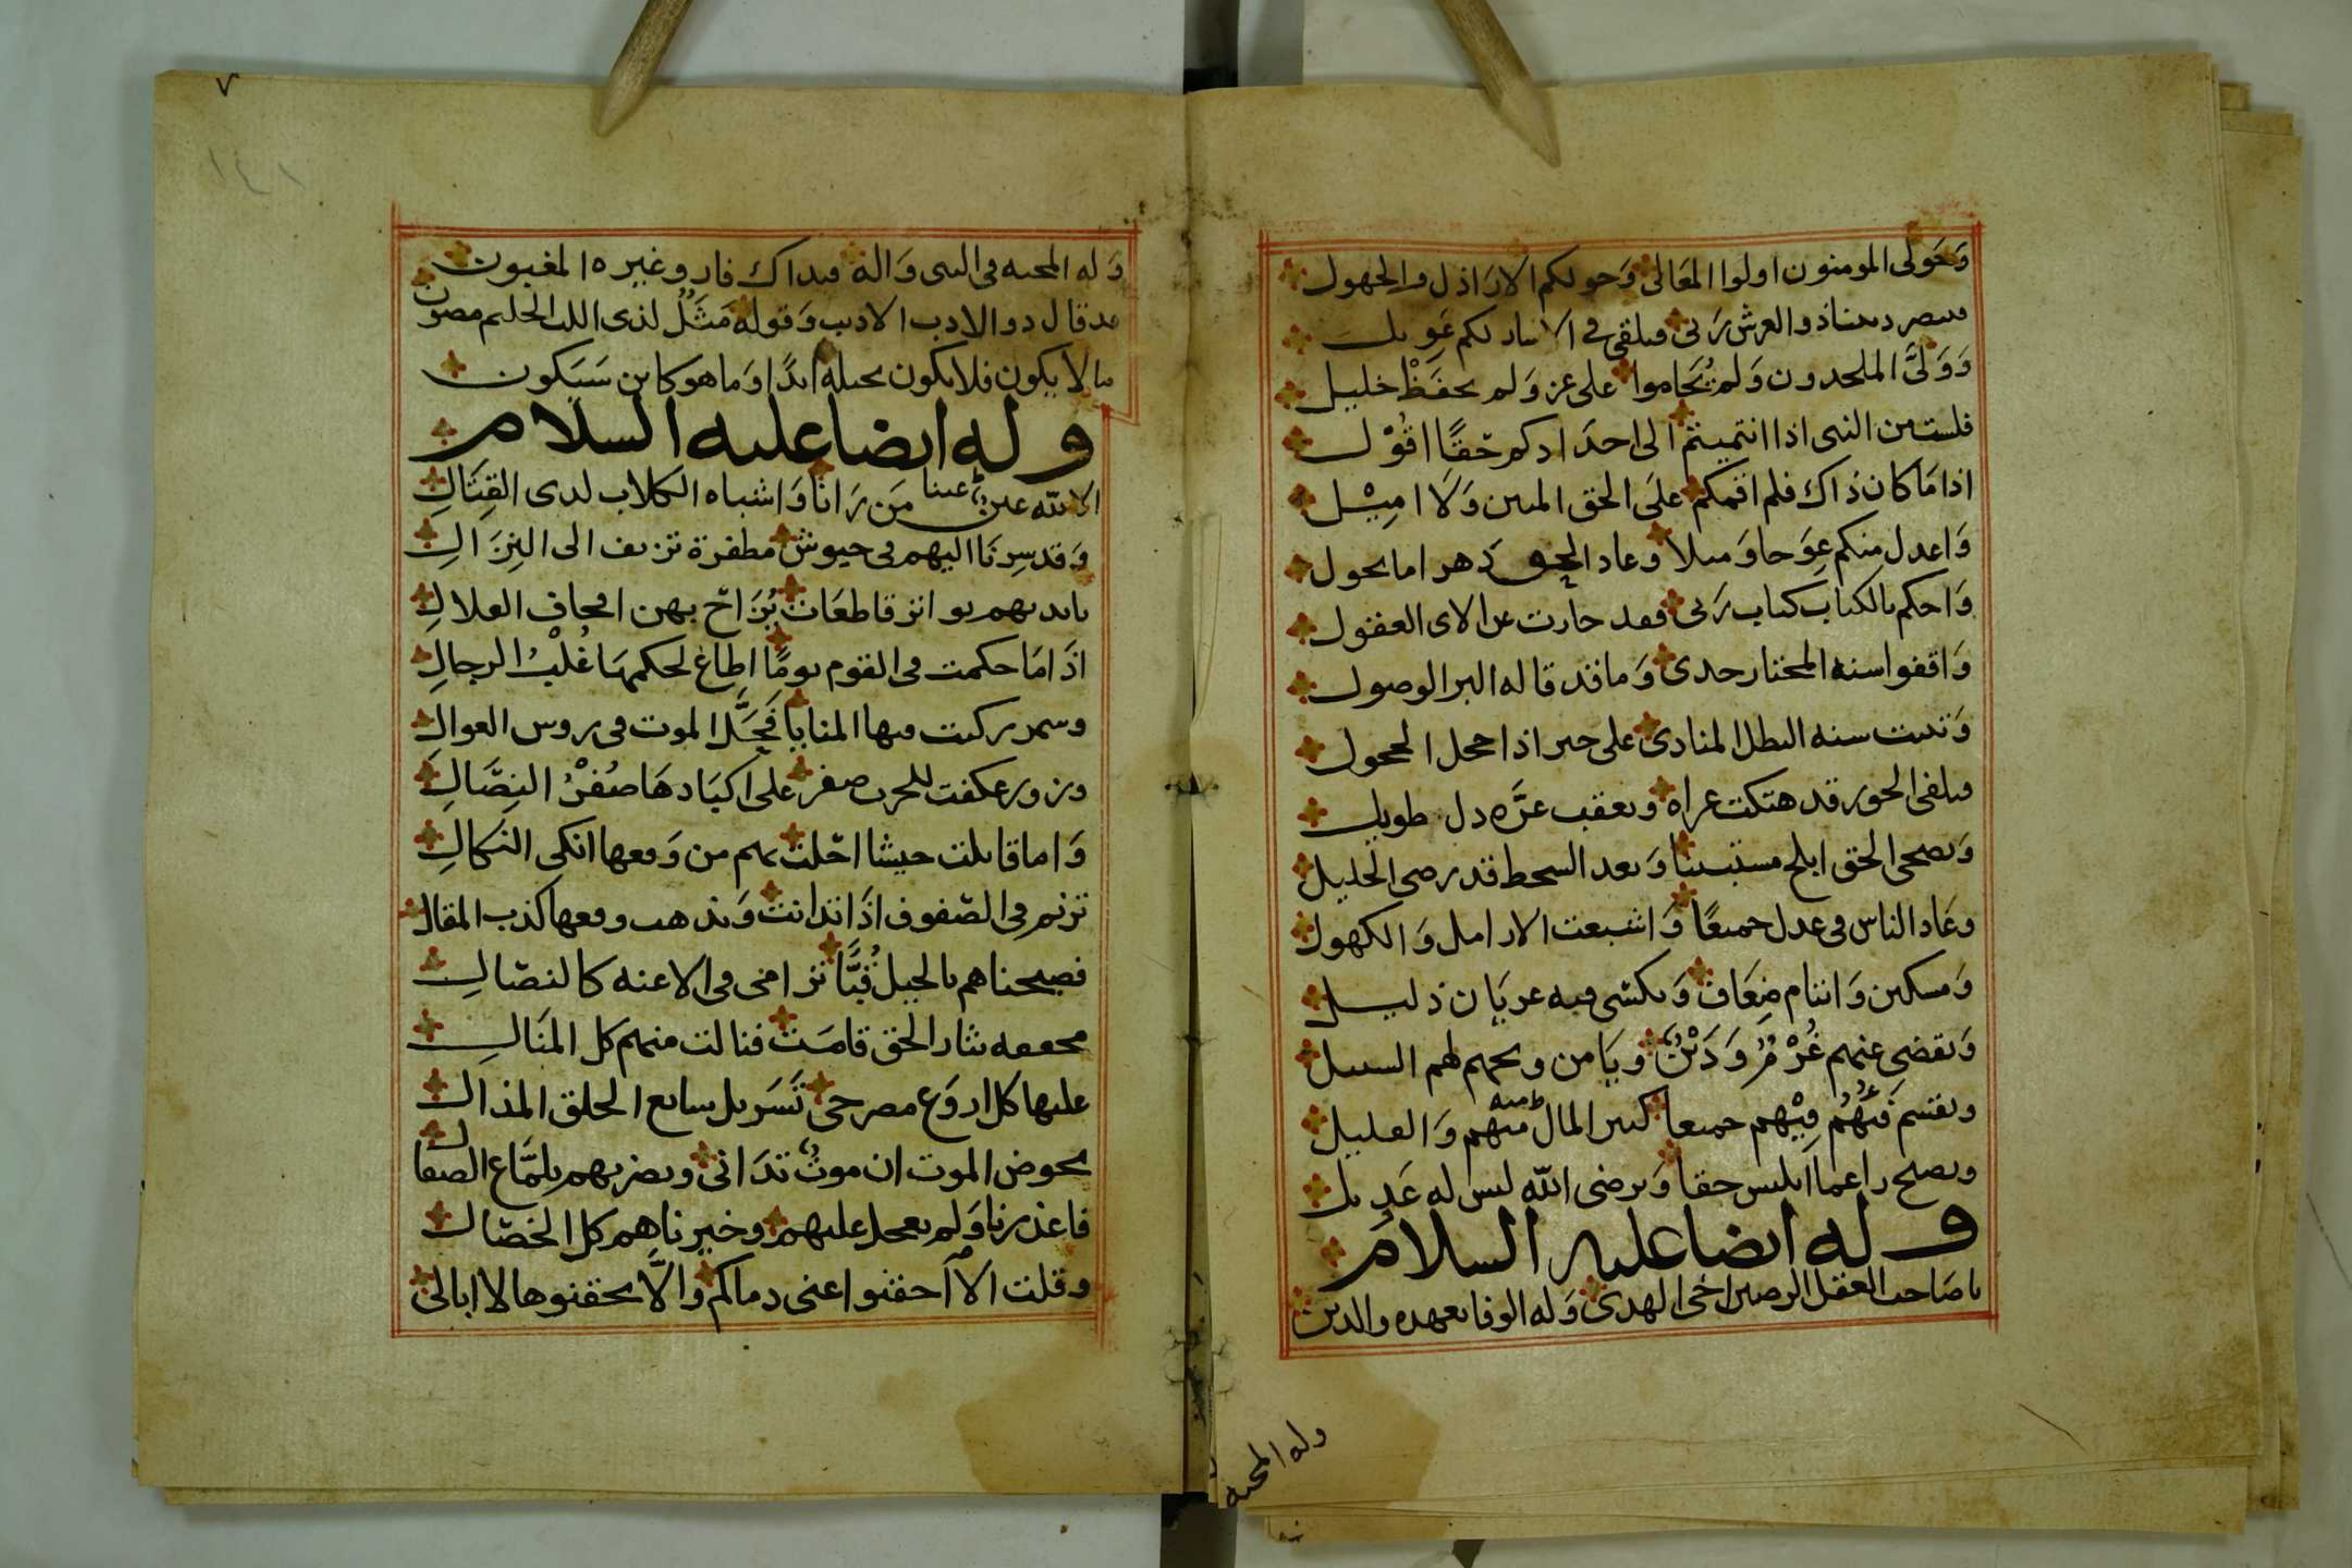 وَحَولى المومنون اولوا المعَالى وَحولكم الارَاذل والجهول
فينصر ديننا ذو العرش رَبى فيلقى في الانار لكم عَويل
وَوَلىَّ الملحدون وَلم يُحَاموا على عز وَلم يحفَظْ خليل
فلست من النبى اذا انتميتم الى احدَ ادكم حَقًا اقُوْل
اذا مَا كان ذاك فلم اقمكم علىَ الحق المبين وَلَا اميْل
وَاعدل منكم عِوَجا وَميلا وعاد الحق دَهر اما يحول
وَاحكم بالكتاب كتاب رَبى فقد حارت عن الاى العقول
وَاقفوا سنه المختار جدى وَما قد قاله البر الوصول
وَتثبت سنه البطل المنادى على خبر اذا جحل الحجول
فيلقى الجور قد هتكت عراه ويعقب عزَّه ذل طويل
وَيضحى الحق ابلج مستبينا وَبعد السخط قد رضى الجليل
وعَاد الناس في عدل جميعًا وَاشبعت الارامل وَالكهول
وَمسكين وَايتام ضِعَاف وَيكسى فيه عريَان ذليل
وَيقضى عنهم غُرْمٌ وَدَيْنٌ ويَامن وبحهم لهم السبيل
ويقسم فَيْئُهُم فِيْهم جميعا كثير المال منهم وَالقليل
ويصلح راغما ابليس حقا وَيرضى الله ليس له عَديل
وله ايضا عليه السلام
يا صَاحب العقل الرصين اخى الهدى وَله الوفا بعهده والدين
وله المحبه
وَله المحبه في النبى وَاله فبذاك فاز وغيره المغبون
قد قال ذو الادب الاديب وَقوله مَثَلٌ لذى اللب الحليم مصون
ما لا يكون فلا يكون بحيله ابدًا وَما هو كاين سَيَكون
وله ايضا عليه السلام
الا لله عين عينا مَن رَانا وَاشباه الكلاب لدى القِتَال
وَقد سِرنَا اليهم في جيوش مظفرة تزيف الى النِزَال
بايديهم بواتر قاطعَات يُزَاح بهن اقحاف القلال
اذَا مَا حكمت في القوم يومًا اطاع لحكمهَا غُلْبُ الرجال
وسمر ركبت فيها المنايا فَحَلَّ الموت في روس العوال
وزور عكفت للحرب صفر على اكبَادهَا صُفْرُ النِصَال
وَاما قابلت جيشا احَلت بهم من وَقعها انكى النكال
ترنم في الصّفوف اذَا تدانت وَيذهب وقعها كذب المقال
فصبحناهم بالخيل قُبًّا تَرامى في الاعنه كالنصّال
محققه بثار الحق قامَت فنالت منهم كل المنَال
عليها كل اروَع مضرحى تَسَربل سابغ الحلق المذال
يخوض الموت ان موتٌ تدَانى ويضربهم بلمَّاع الصقال
فاعذرنا وَلم يعجل عليهم وخيرناهم كل الخصّال
وقلت الا احقنوا عنى دماكم والَّا يحقنوها لا ابالى
٧
١٤١